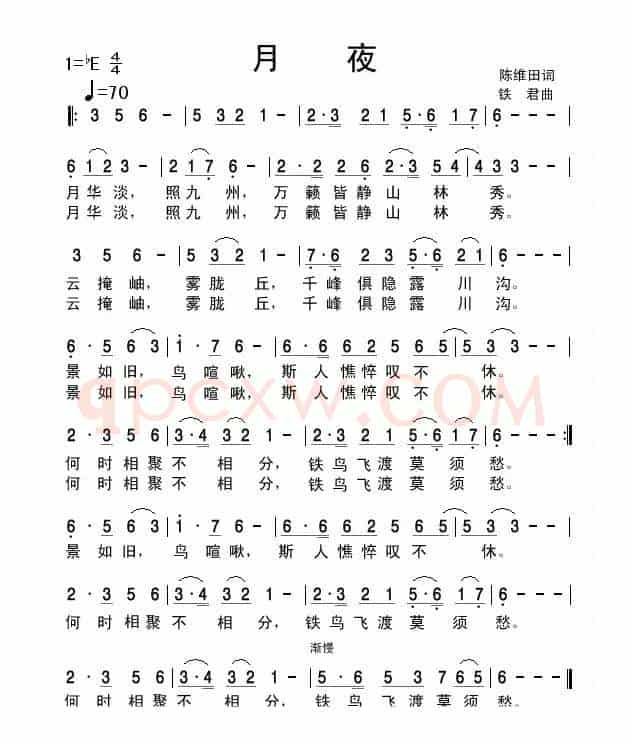 月 夜
1=♭E 4/4
♩=70
陈维田词
铁 君曲
‖: 3 5 6 - | 5 3 2 1 - | 2·3 2 1 5·6 1 7 | 6 - - - |
6 1 2 3 - | 2 1 7 6 - | 2·2 2 6 2·3 5 4 | 4 3 3 - |
月华淡，照九州，万籁皆静山林秀。
月华淡，照九州，万籁皆静山林秀。
3 5 6 - | 5 3 2 1 - | 7·6 2 3 5·6 2 1 | 6 - - - |
云掩岫，雾胧丘，千峰俱隐露川沟。
云掩岫，雾胧丘，千峰俱隐露川沟。
6·5 6 3 | 1·7 6 - | 6·6 6 2 5 6 5 | 5 3 3 - |
景如旧，鸟喧啾，斯人憔悴叹不休。
景如旧，鸟喧啾，斯人憔悴叹不休。
qpcxw.COM
2·3 5 6 | 3·4 3 2 1 - | 2·3 2 1 5·6 1 7 | 6 - - - :‖
何时相聚不相分，铁鸟飞渡莫须愁。
何时相聚不相分，铁鸟飞渡莫须愁。
6·5 6 3 | 1·7 6 - | 6·6 6 2 5 6 5 | 5 3 3 - |
景如旧，鸟喧啾，斯人憔悴叹不休。
2·3 5 6 | 3·4 3 2 1 - | 2·3 2 1 5·6 1 7 | 6 - - - |
何时相聚不相分，铁鸟飞渡莫须愁。
渐慢
2·3 5 6 | 3·4 3 2 1 - | 5·6 5 3 7 6 5 | 6 - - - ‖
何时相聚不相分，铁鸟飞渡莫须愁。